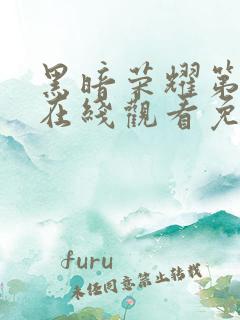 黑暗荣耀第
在线觀看免
furu
未经同意禁止转载